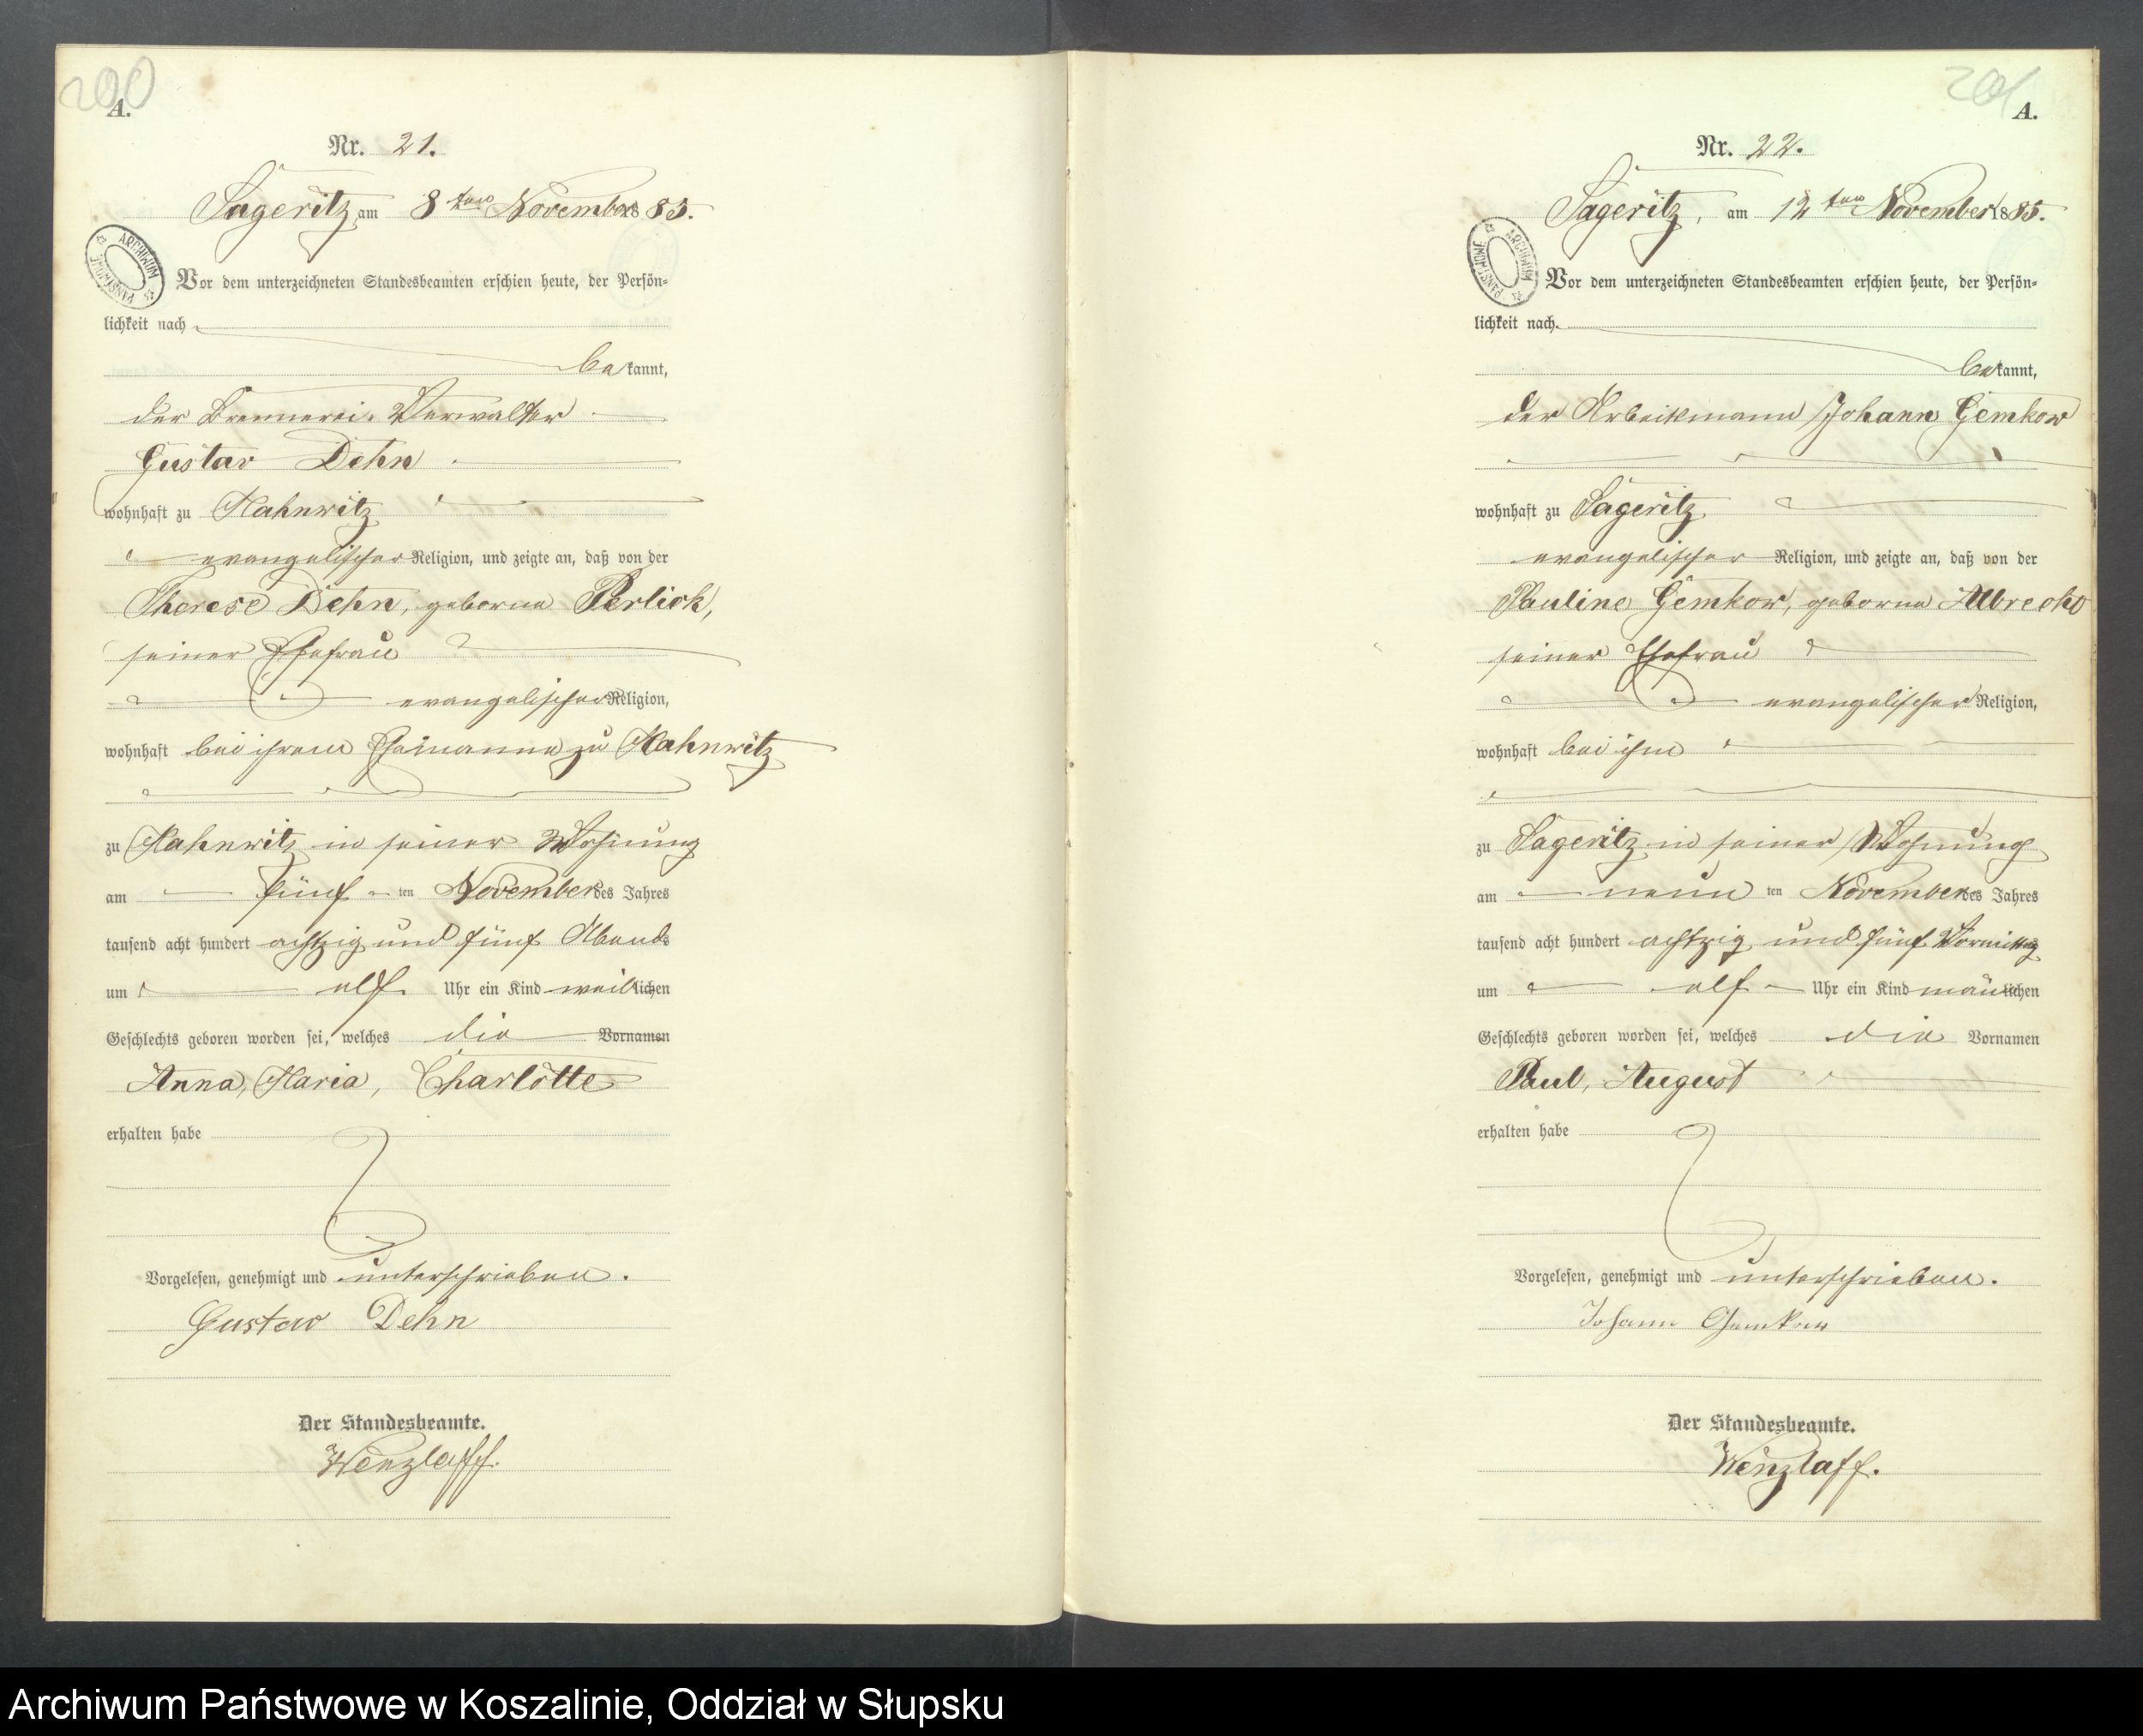 200
A.
Nr. 21.
Sageritz, am 8ten November 1885.
ARCHIWUM PAŃSTWOWE
Vor dem unterzeichneten Standesbeamten erschien heute, der Persön-
lichkeit nach
bekannt,
der Brennerei-Verwalter
Gustav Dehn
wohnhaft zu Mahnwitz
evangelischer Religion, und zeigte an, daß von der
Therese Dehn, geborne Perlick,
seiner Ehefrau
evangelischer Religion,
wohnhaft bei ihrem Ehemanne zu Mahnwitz
zu Mahnwitz in seiner Wohnung
am fünf ten November des Jahres
tausend acht hundert achtzig und fünf Abends
um elf Uhr ein Kind weiblichen
Geschlechts geboren worden sei, welches die Vornamen
Anna, Maria, Charlotte
erhalten habe
Vorgelesen, genehmigt und unterschrieben.
Gustav Dehn
Der Standesbeamte.
Wenzlaff.
201
A.
Nr. 22.
Sageritz, am 12ten November 1885.
ARCHIWUM PAŃSTWOWE
Vor dem unterzeichneten Standesbeamten erschien heute, der Persön-
lichkeit nach
bekannt,
der Arbeitsmann Johann Gemkow
wohnhaft zu Sageritz
evangelischer Religion, und zeigte an, daß von der
Pauline Gemkow, geborne Albrecht
seiner Ehefrau
evangelischer Religion,
wohnhaft bei ihm
zu Sageritz in seiner Wohnung
am neun ten November des Jahres
tausend acht hundert achtzig und fünf Vormittag
um elf Uhr ein Kind männlichen
Geschlechts geboren worden sei, welches die Vornamen
Paul, August
erhalten habe
Vorgelesen, genehmigt und unterschrieben.
Johann Gemkow
Der Standesbeamte.
Wenzlaff.
Archiwum Państwowe w Koszalinie, Oddział w Słupsku